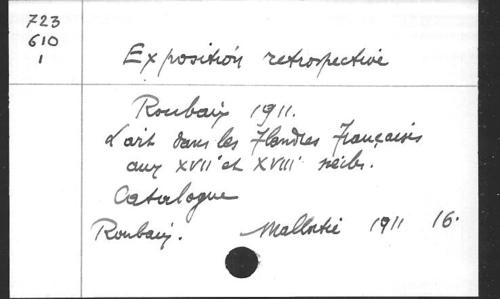 723
610
1
Exposition retrospective
Roubaix 1911.
L'art dans les Flandres Françaises
aux XVIIe et XVIIIe siècles.
Catalogue
Roubaix. Mallortie 1911 16.